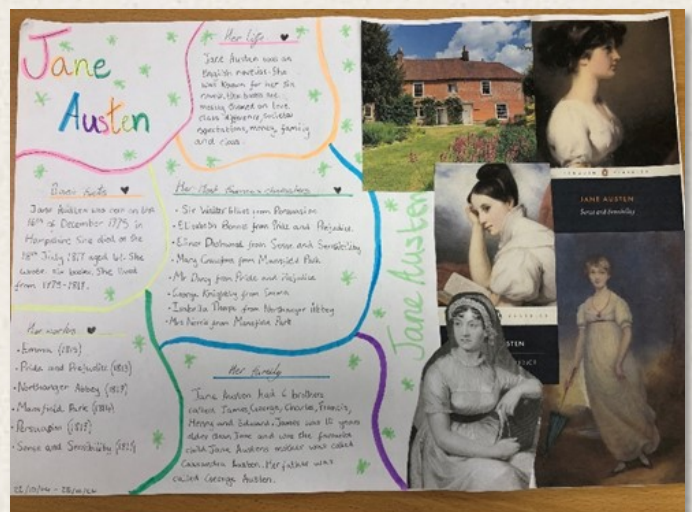 Jane
Austen
Her life
Jane Austen was an
English novelist. She
was known for her six
novels. Her books are
mainly based on love
class difference, societal
expectations, money, family
and class.
Basic facts
Jane Austen was born on the
16th of December 1775 in
Hampshire. She died on the
18th July 1817 aged 41. She
wrote six books. She lived
from 1775-1817.
Her most famous characters
• Sir Walter Elliot from Persuasion
• Elizabeth Bennet from Pride and Prejudice
• Elinor Dashwood from Sense and Sensibility
• Mary Crawford from Mansfield Park
• Mr Darcy from Pride and Prejudice
• George Knightley from Emma
• Isabella Thorpe from Northanger Abbey
• Mrs Norris from Mansfield Park
Her works
• Emma (1815)
• Pride and Prejudice (1813)
• Northanger Abbey
• Mansfield Park (1814)
• Persuasion
• Sense and Sensibility
Her family
Jane Austen had 6 brothers
called James, George, Charles, Francis,
Henry and Edward. James was 10 years
older than Jane and was the favourite
child. Jane Austens mother was called
Cassandra Austen. Her father was
called George Austen.
Jane Austen
PENGUIN CLASSICS
JANE AUSTEN
Sense and Sensibility
STEN